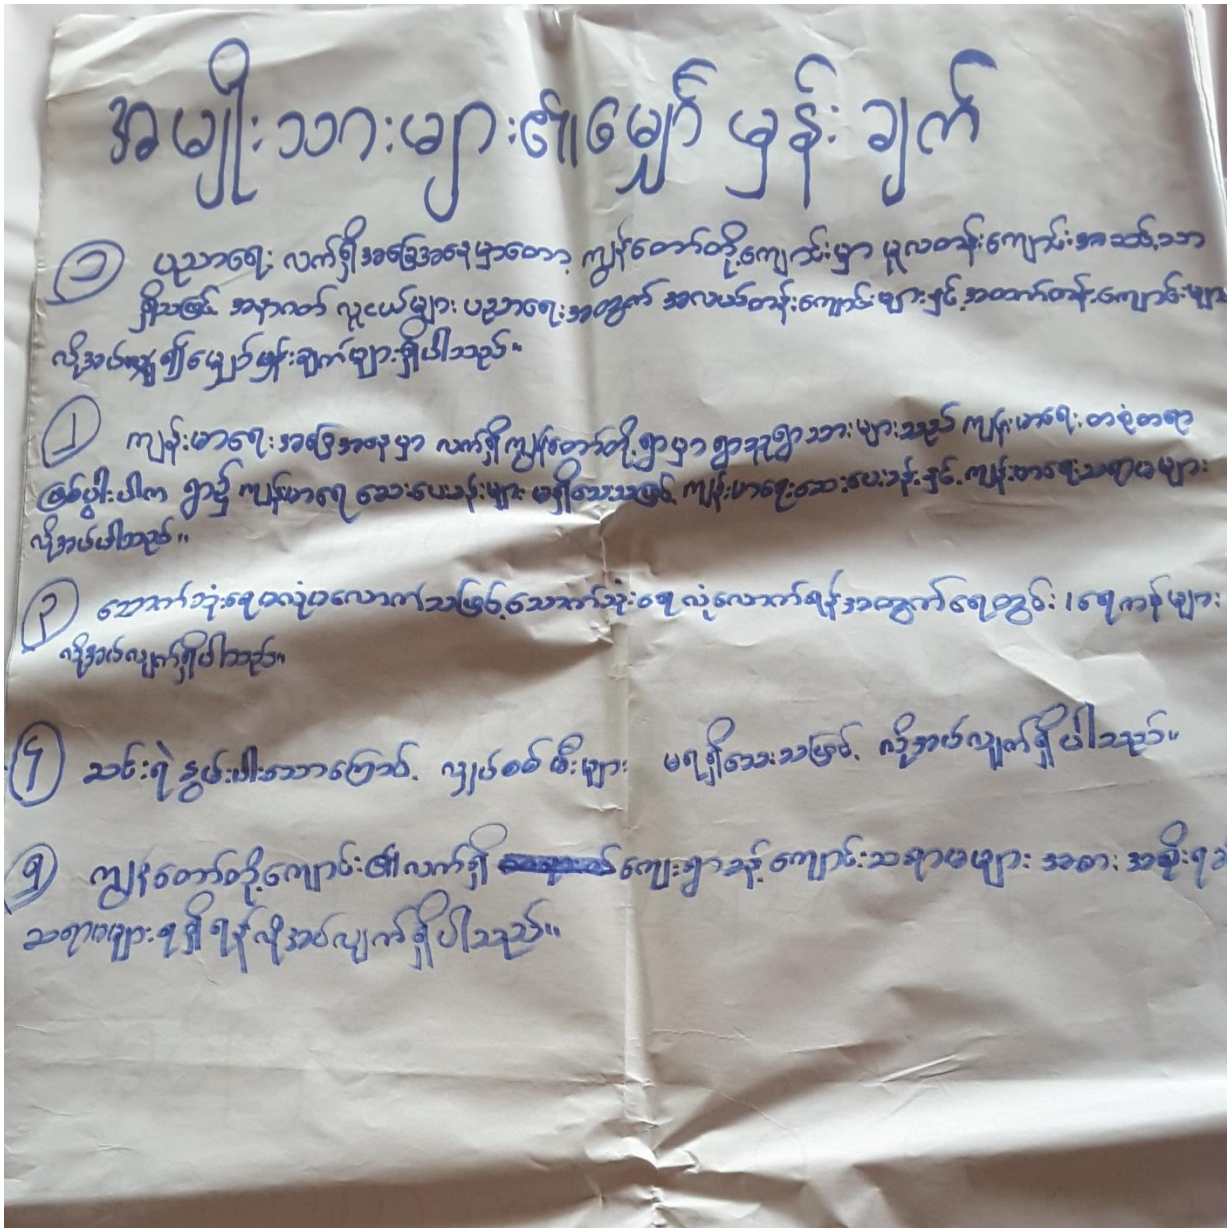 အမျိုးသားများ၏မျှော်မှန်းချက်
၁ ပညာရေး လက်ရှိအခြေအနေမှာတော့ ကျွန်တော်တို့ကျောင်းမှာ မူလတန်းကျောင်းအဆင့်သာ
ရှိသဖြင့် အနာဂတ် လူငယ်များ ပညာရေးအတွက် အလယ်တန်းကျောင်းများနှင့် အထက်တန်းကျောင်းများ
လိုအပ်၍မျှော်မှန်းချက်များရှိပါသည်။
၂ ကျန်းမာရေးအခြေအနေမှာ လက်ရှိကျွန်တော်တို့ရွာမှာ ရွာသူရွာသားများသည် ကျန်းမာရေး တစုံတရာ
ဖြစ်ပွါးပါက ရွာ၌ ကျန်မာရေ ဆေးပေးခန်းများ မရှိသေးသဖြင့် ကျန်းမာရေးဆေးပေးခန်းနှင့် ကျန်းမာရေးဆရာမများ
လိုအပ်ပါသည်။
၃ သောက်သုံးရေမလုံမလောက်သဖြင့်သောက်သုံးရေလုံလောက်ရန်အတွက်ရေတွင်း၊ရေကန်များ
လိုအပ်လျက်ရှိပါသည်။
၄ ဆင်းရဲနွမ်းပါးသောကြောင့် လျှပ်စစ်မီးများ မရရှိသေးသဖြင့် လိုအပ်လျက်ရှိပါသည်။
၅ ကျွန်တော်တို့ကျောင်း၏လက်ရှိ ကျေးရွာခန့်ကျောင်းဆရာမများ အစား အစိုးရခ
ဆရာမများရရှိရန်လိုအပ်လျက်ရှိပါသည်။